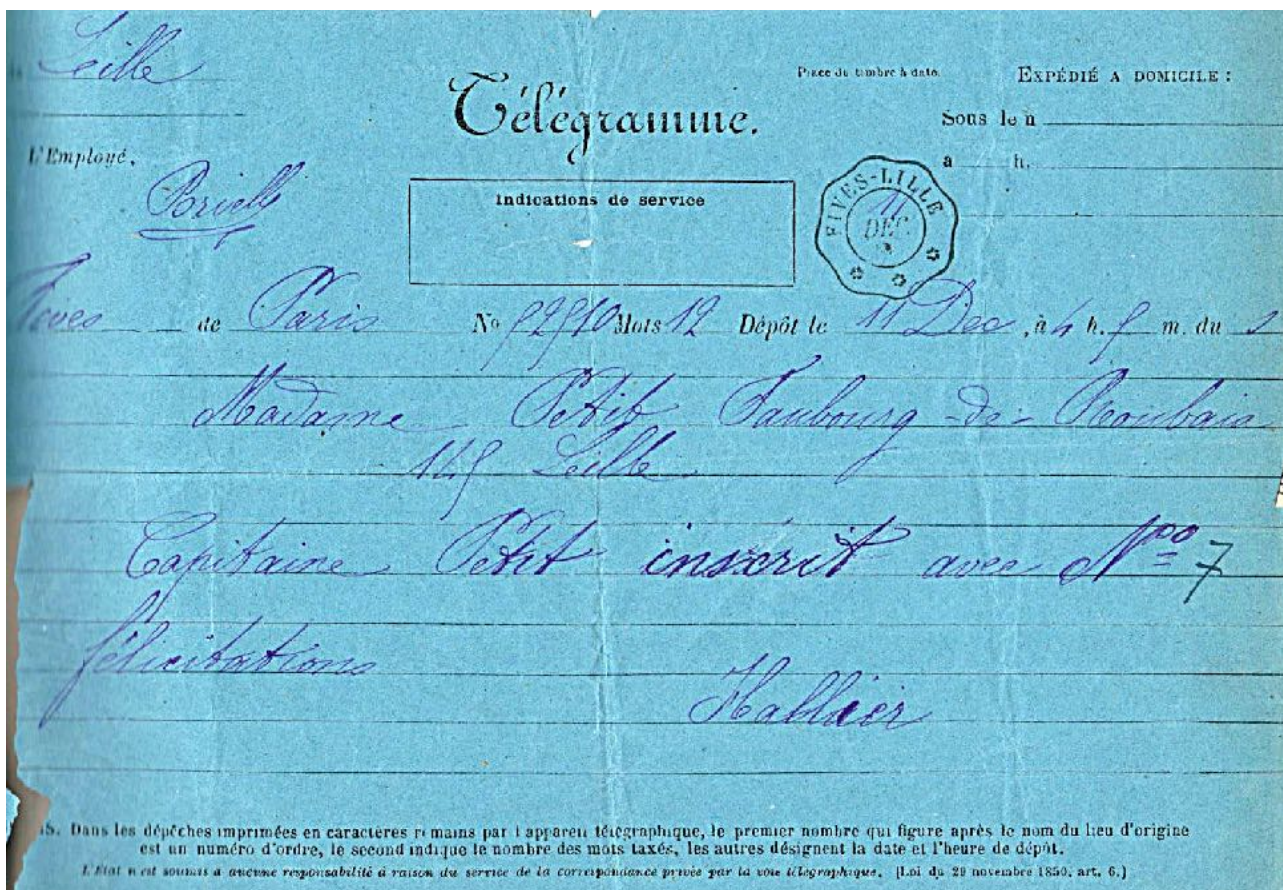 Lille
Télégramme.
Place du timbre à date.
EXPÉDIÉ A DOMICILE :
Sous le n
à h.
L'Employé,
Indications de service
FIVES-LILLE
11
DEC.
Fives de Paris No 92910 Mots 12 Dépôt le 11 Dec, à 4 h. 5 m. du s
Madame Petit Faubourg-de-Roubaix
145 Lille
Capitaine Petit inscrit avec Nº 7
félicitations
Hallier
Dans les dépêches imprimées en caractères romains par l'appareil télégraphique, le premier nombre qui figure après le nom du lieu d'origine
est un numéro d'ordre, le second indique le nombre des mots taxés, les autres désignent la date et l'heure de dépôt.
L'État n'est soumis à aucune responsabilité à raison du service de la correspondance privée par la voie télégraphique. (Loi du 29 novembre 1850, art. 6.)